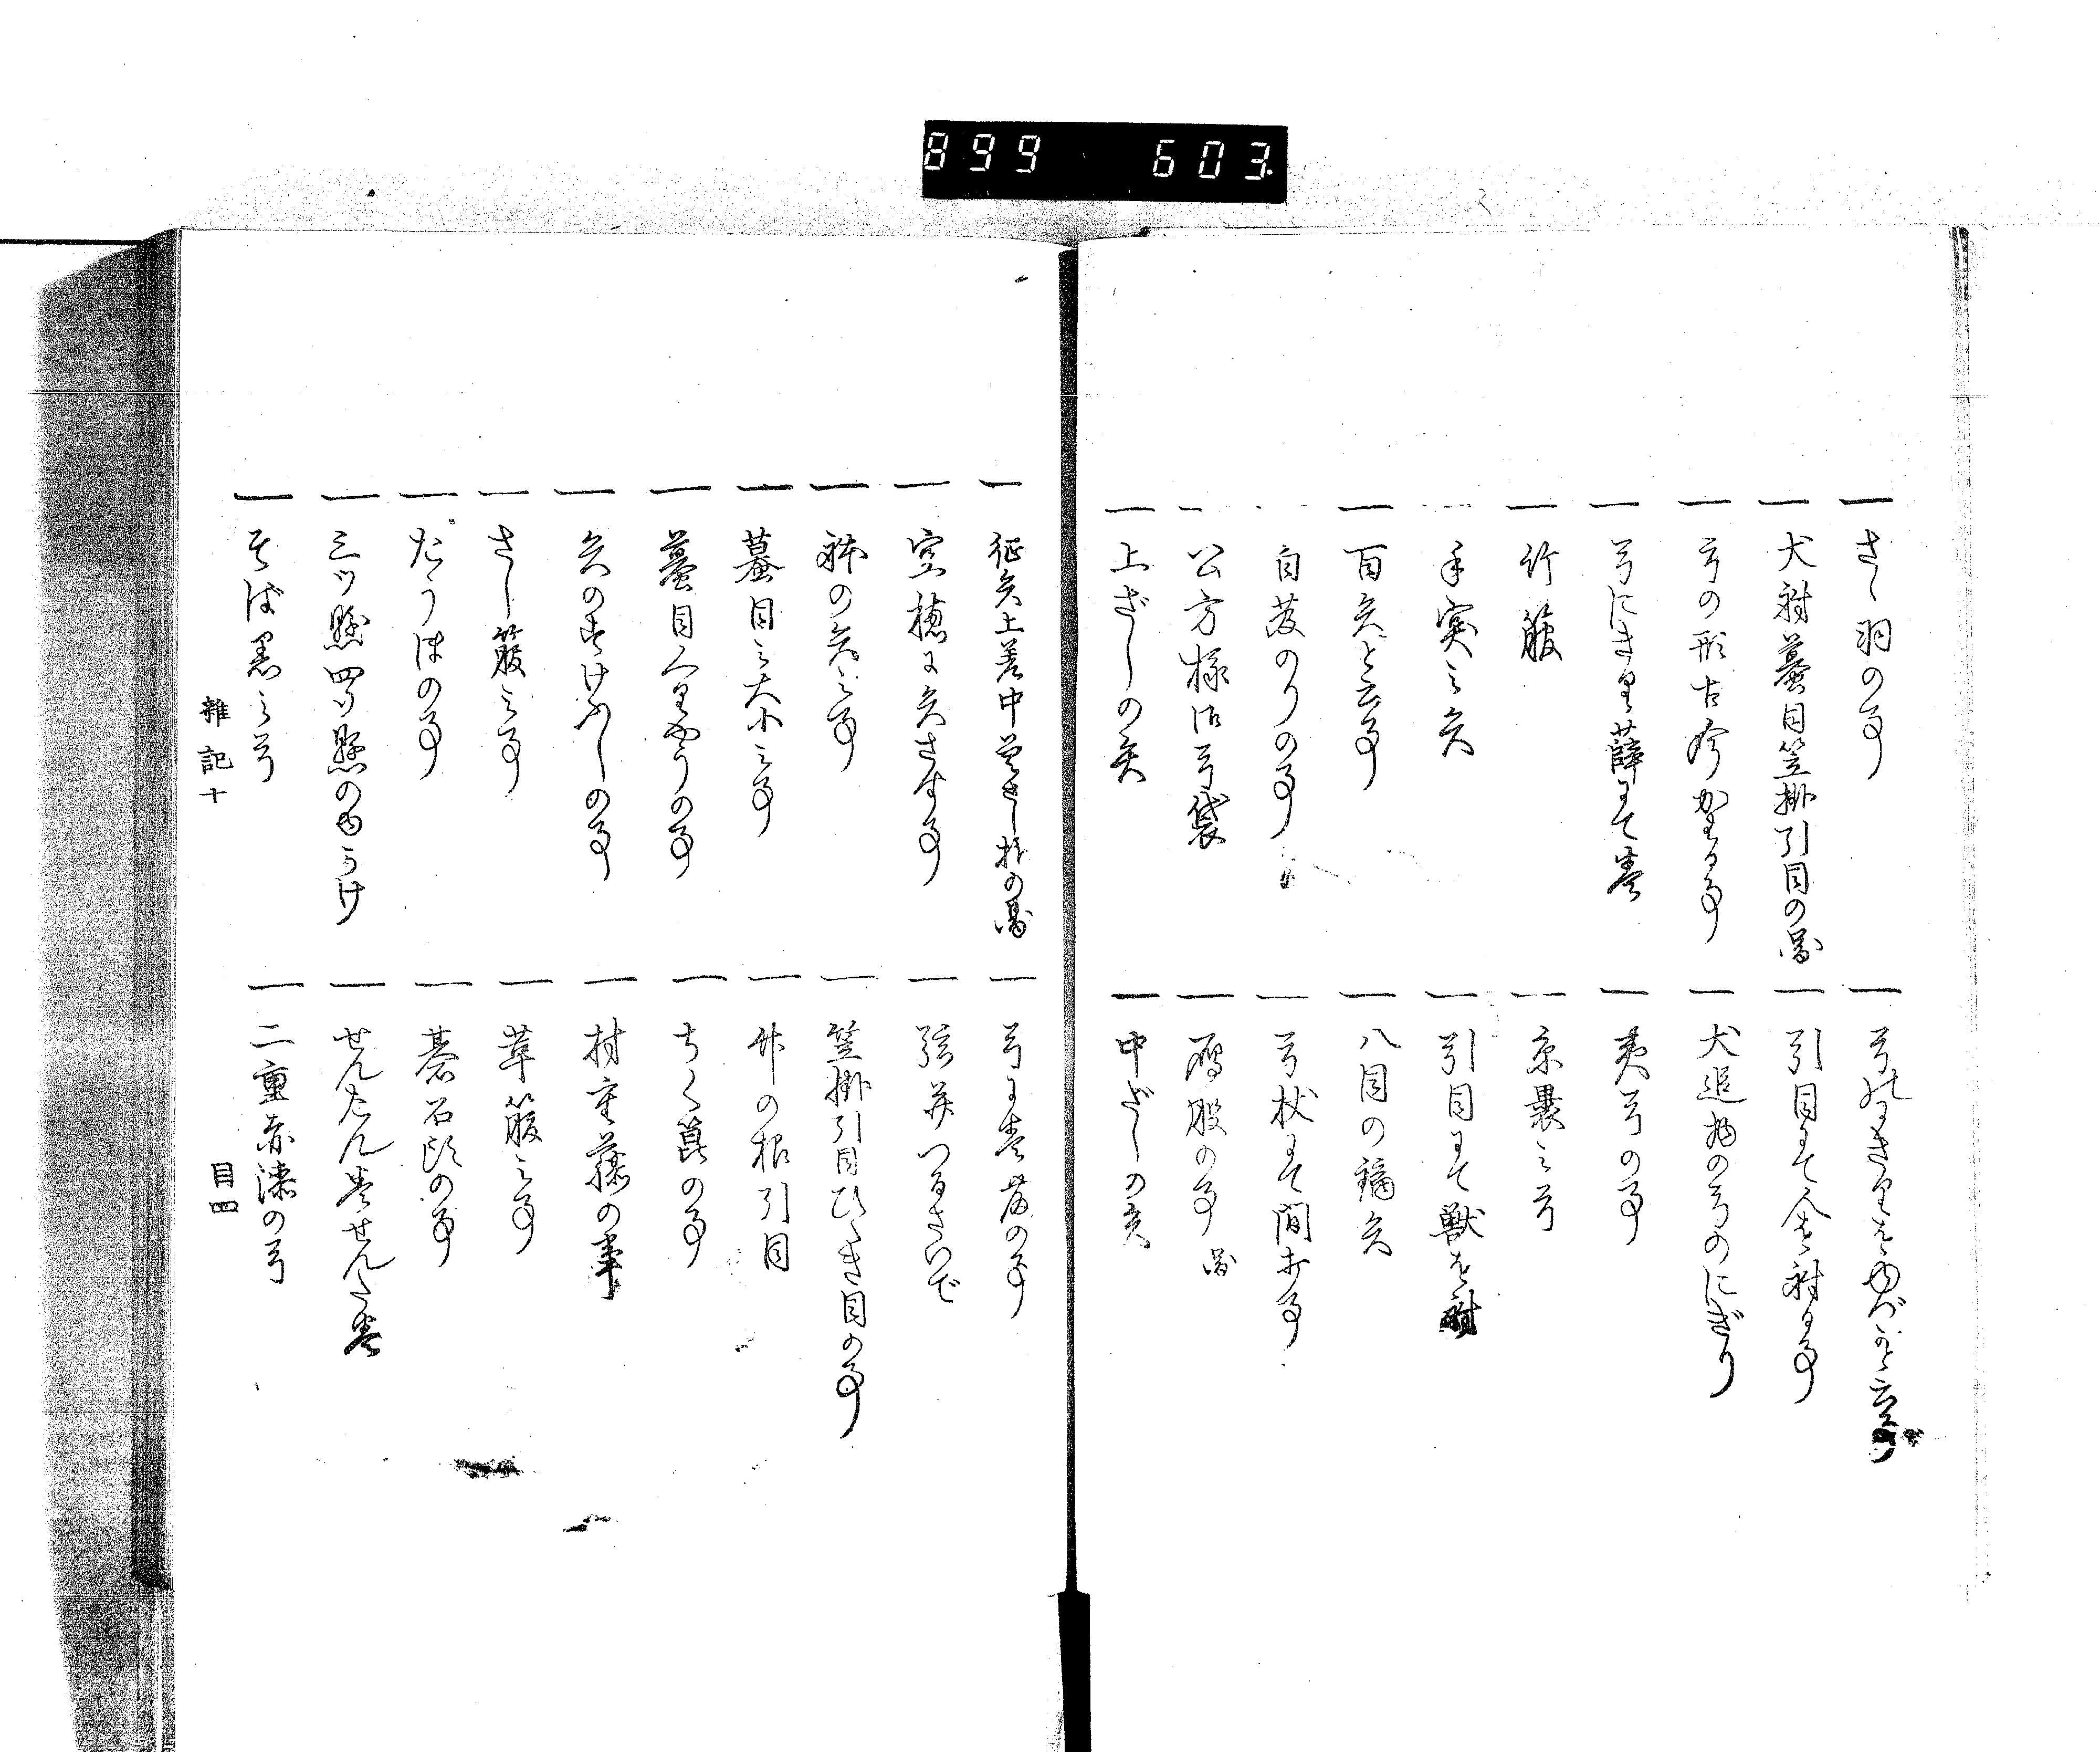 899 603
一 さゝ羽の事
一 弓のにきりをゆづかと云事
一 犬射蟇目笠掛引目の図
一 引目にて人を射る事
一 弓の形古今かはる事
一 犬追物の弓のにぎり
一 弓にきり薛にて巻
一 夷弓の事
一 竹箙
一 京裹之弓
一 手突之矢
一 引目にて獣を射
一 百矢と云事
一 八目の鏑矢
一 白箆のりの事
一 弓杖にて間打事
一 公方様御弓袋
一 雁股の事 図
一 上ざしの矢
一 中ざしの矢
一 征矢上差中差さし様の図
一 弓を巻藤の事
一 空穂に矢さす事
一 弦並つるさいで
一 神の矢之事
一 笠掛引目ひゝき目の事
一 蟇目之大小之事
一 竹の根引目
一 蟇目くりやうの事
一 ちく箆の事
一 矢のすけぶしの事
一 村重藤の事
一 さし箙之事
一 革箙之事
一 たうほの事
一 碁石頭の事
一 三ツ懸四ツ懸のゆかけ
一 せんたん巻せんた巻
一 そば黒之弓
一 二重赤漆の弓
雑記十
目四